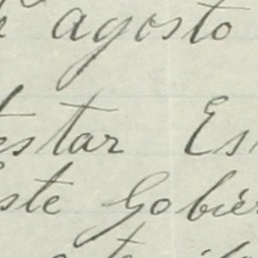 agosto
estar Es
ste Gobier